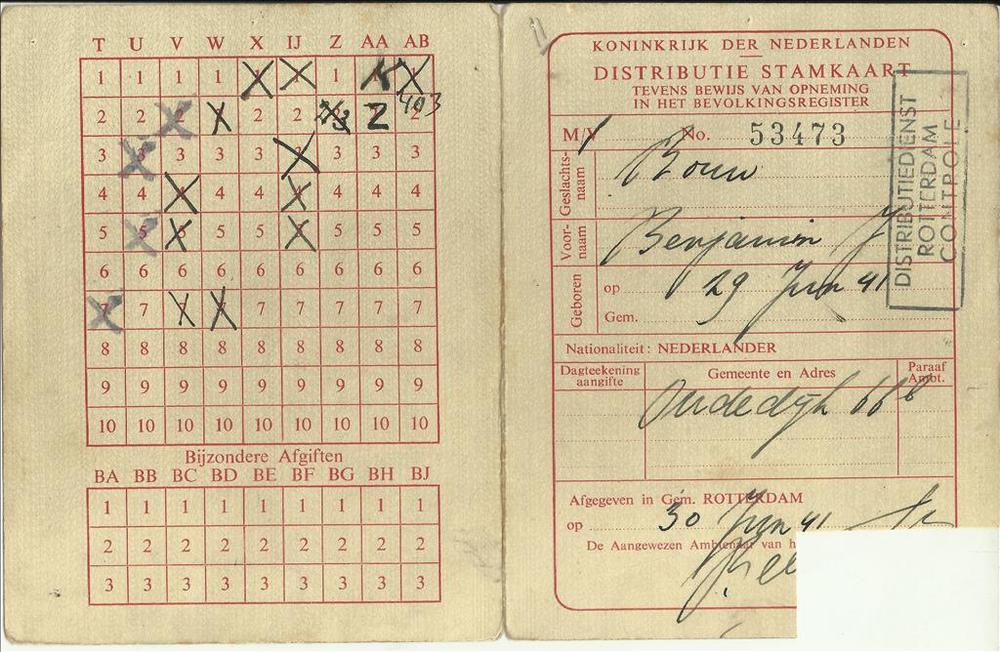 T U V W X IJ Z AA AB
1 1 1 1 1 1 1 1 1
2 2 2 2 2 2 2 2 2
403
3 3 3 3 3 3 3 3 3
4 4 4 4 4 4 4 4 4
5 5 5 5 5 5 5 5 5
6 6 6 6 6 6 6 6 6
7 7 7 7 7 7 7 7 7
8 8 8 8 8 8 8 8 8
9 9 9 9 9 9 9 9 9
10 10 10 10 10 10 10 10 10
Bijzondere Afgiften
BA BB BC BD BE BF BG BH BJ
1 1 1 1 1 1 1 1 1
2 2 2 2 2 2 2 2 2
3 3 3 3 3 3 3 3 3
KONINKRIJK DER NEDERLANDEN
DISTRIBUTIE STAMKAART
TEVENS BEWIJS VAN OPNEMING
IN HET BEVOLKINGSREGISTER
M/V No. 53473
Geslachts-
naam
Bouw
Voor-
naam
Benjamin J
Geboren
op 29 Jun 41
Gem.
Nationaliteit: NEDERLANDER
Dagteekening
aangifte
Gemeente en Adres
Paraaf
Ambt.
Oudedijk 66b
Afgegeven in Gem. ROTTERDAM
op 30 Jun 41
De Aangewezen Ambtenaar van h
DISTRIBUTIEDIENST
ROTTERDAM
CONTROLE